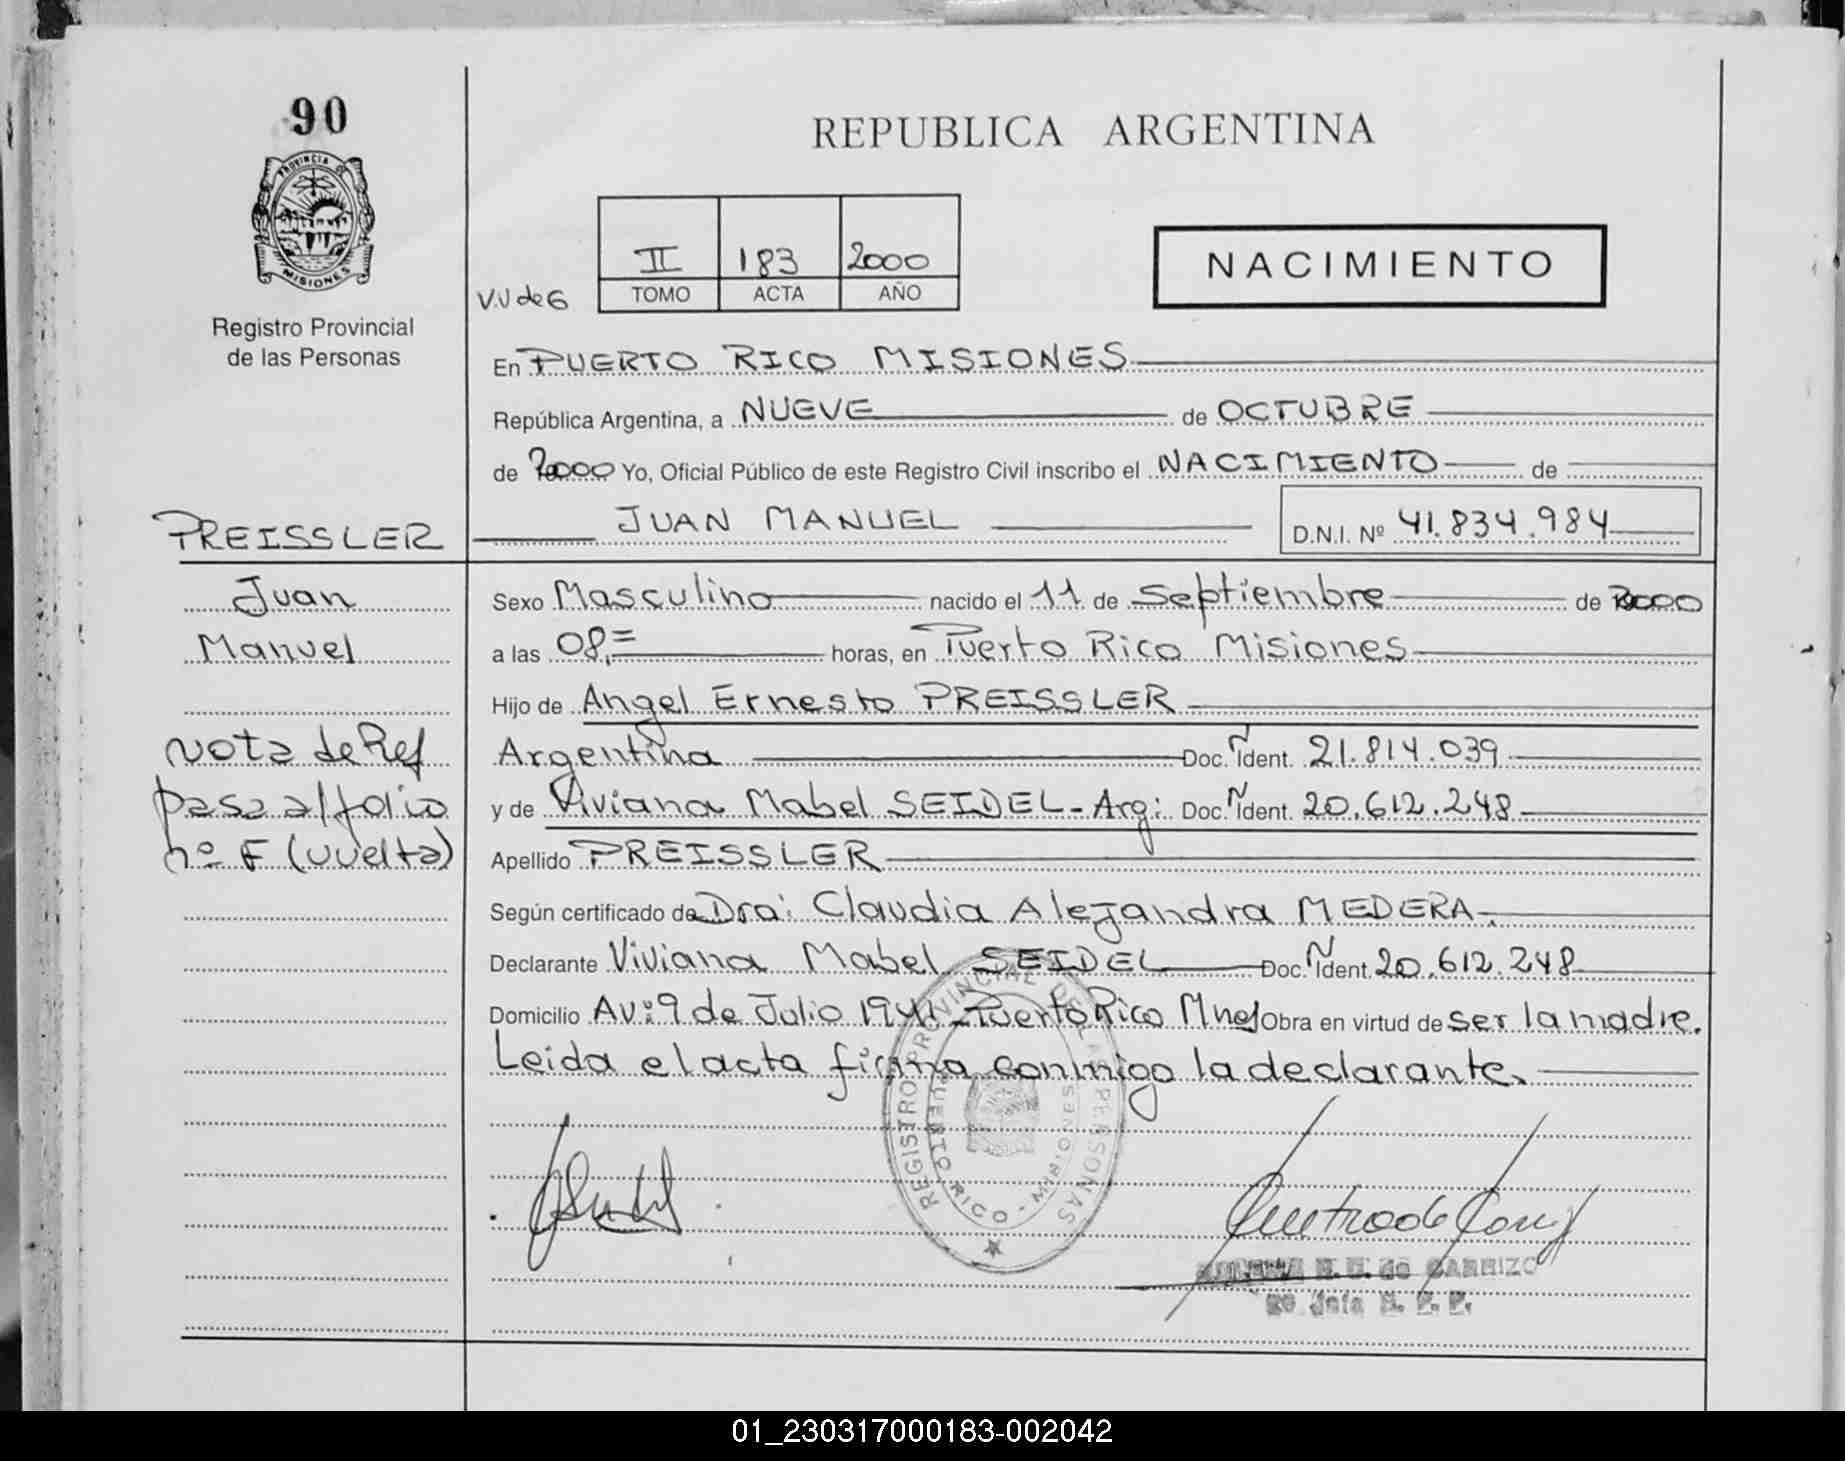 90
PROVINCIA DE
MISIONES
Registro Provincial
de las Personas
REPUBLICA ARGENTINA
II 183 2000
V.V de G TOMO ACTA AÑO
NACIMIENTO
En PUERTO RICO MISIONES
República Argentina, a NUEVE de OCTUBRE
de 2000 Yo, Oficial Público de este Registro Civil inscribo el NACIMIENTO de
JUAN MANUEL D.N.I. Nº 41.834.984
PREISSLER
Juan
Manuel
Nota de Ref
pasa al folio
nº F (vuelta)
Sexo Masculino nacido el 11 de Septiembre de 2000
a las 08,= horas, en Puerto Rico Misiones
Hijo de Angel Ernesto PREISSLER
Argentina Doc. N Ident. 21.814.039
y de Viviana Mabel SEIDEL - Arg: Doc. N Ident. 20.612.248
Apellido PREISSLER
Según certificado de Dra: Claudia Alejandra MEDERA.
Declarante Viviana Mabel SEIDEL Doc. N Ident. 20.612.248
Domicilio Av: 9 de Julio 1941 - Puerto Rico Mnes Obra en virtud de ser la madre.
Leida el acta firma conmigo la declarante.
REGISTRO PROVINCIAL DE LAS PERSONAS
PUERTO RICO - MISIONES
de CARRIZO
Jefa R. P. P.
01_230317000183-002042